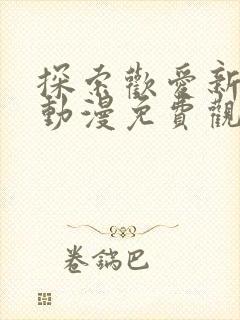 探索歡愛新
動漫免費觀
卷鍋巴